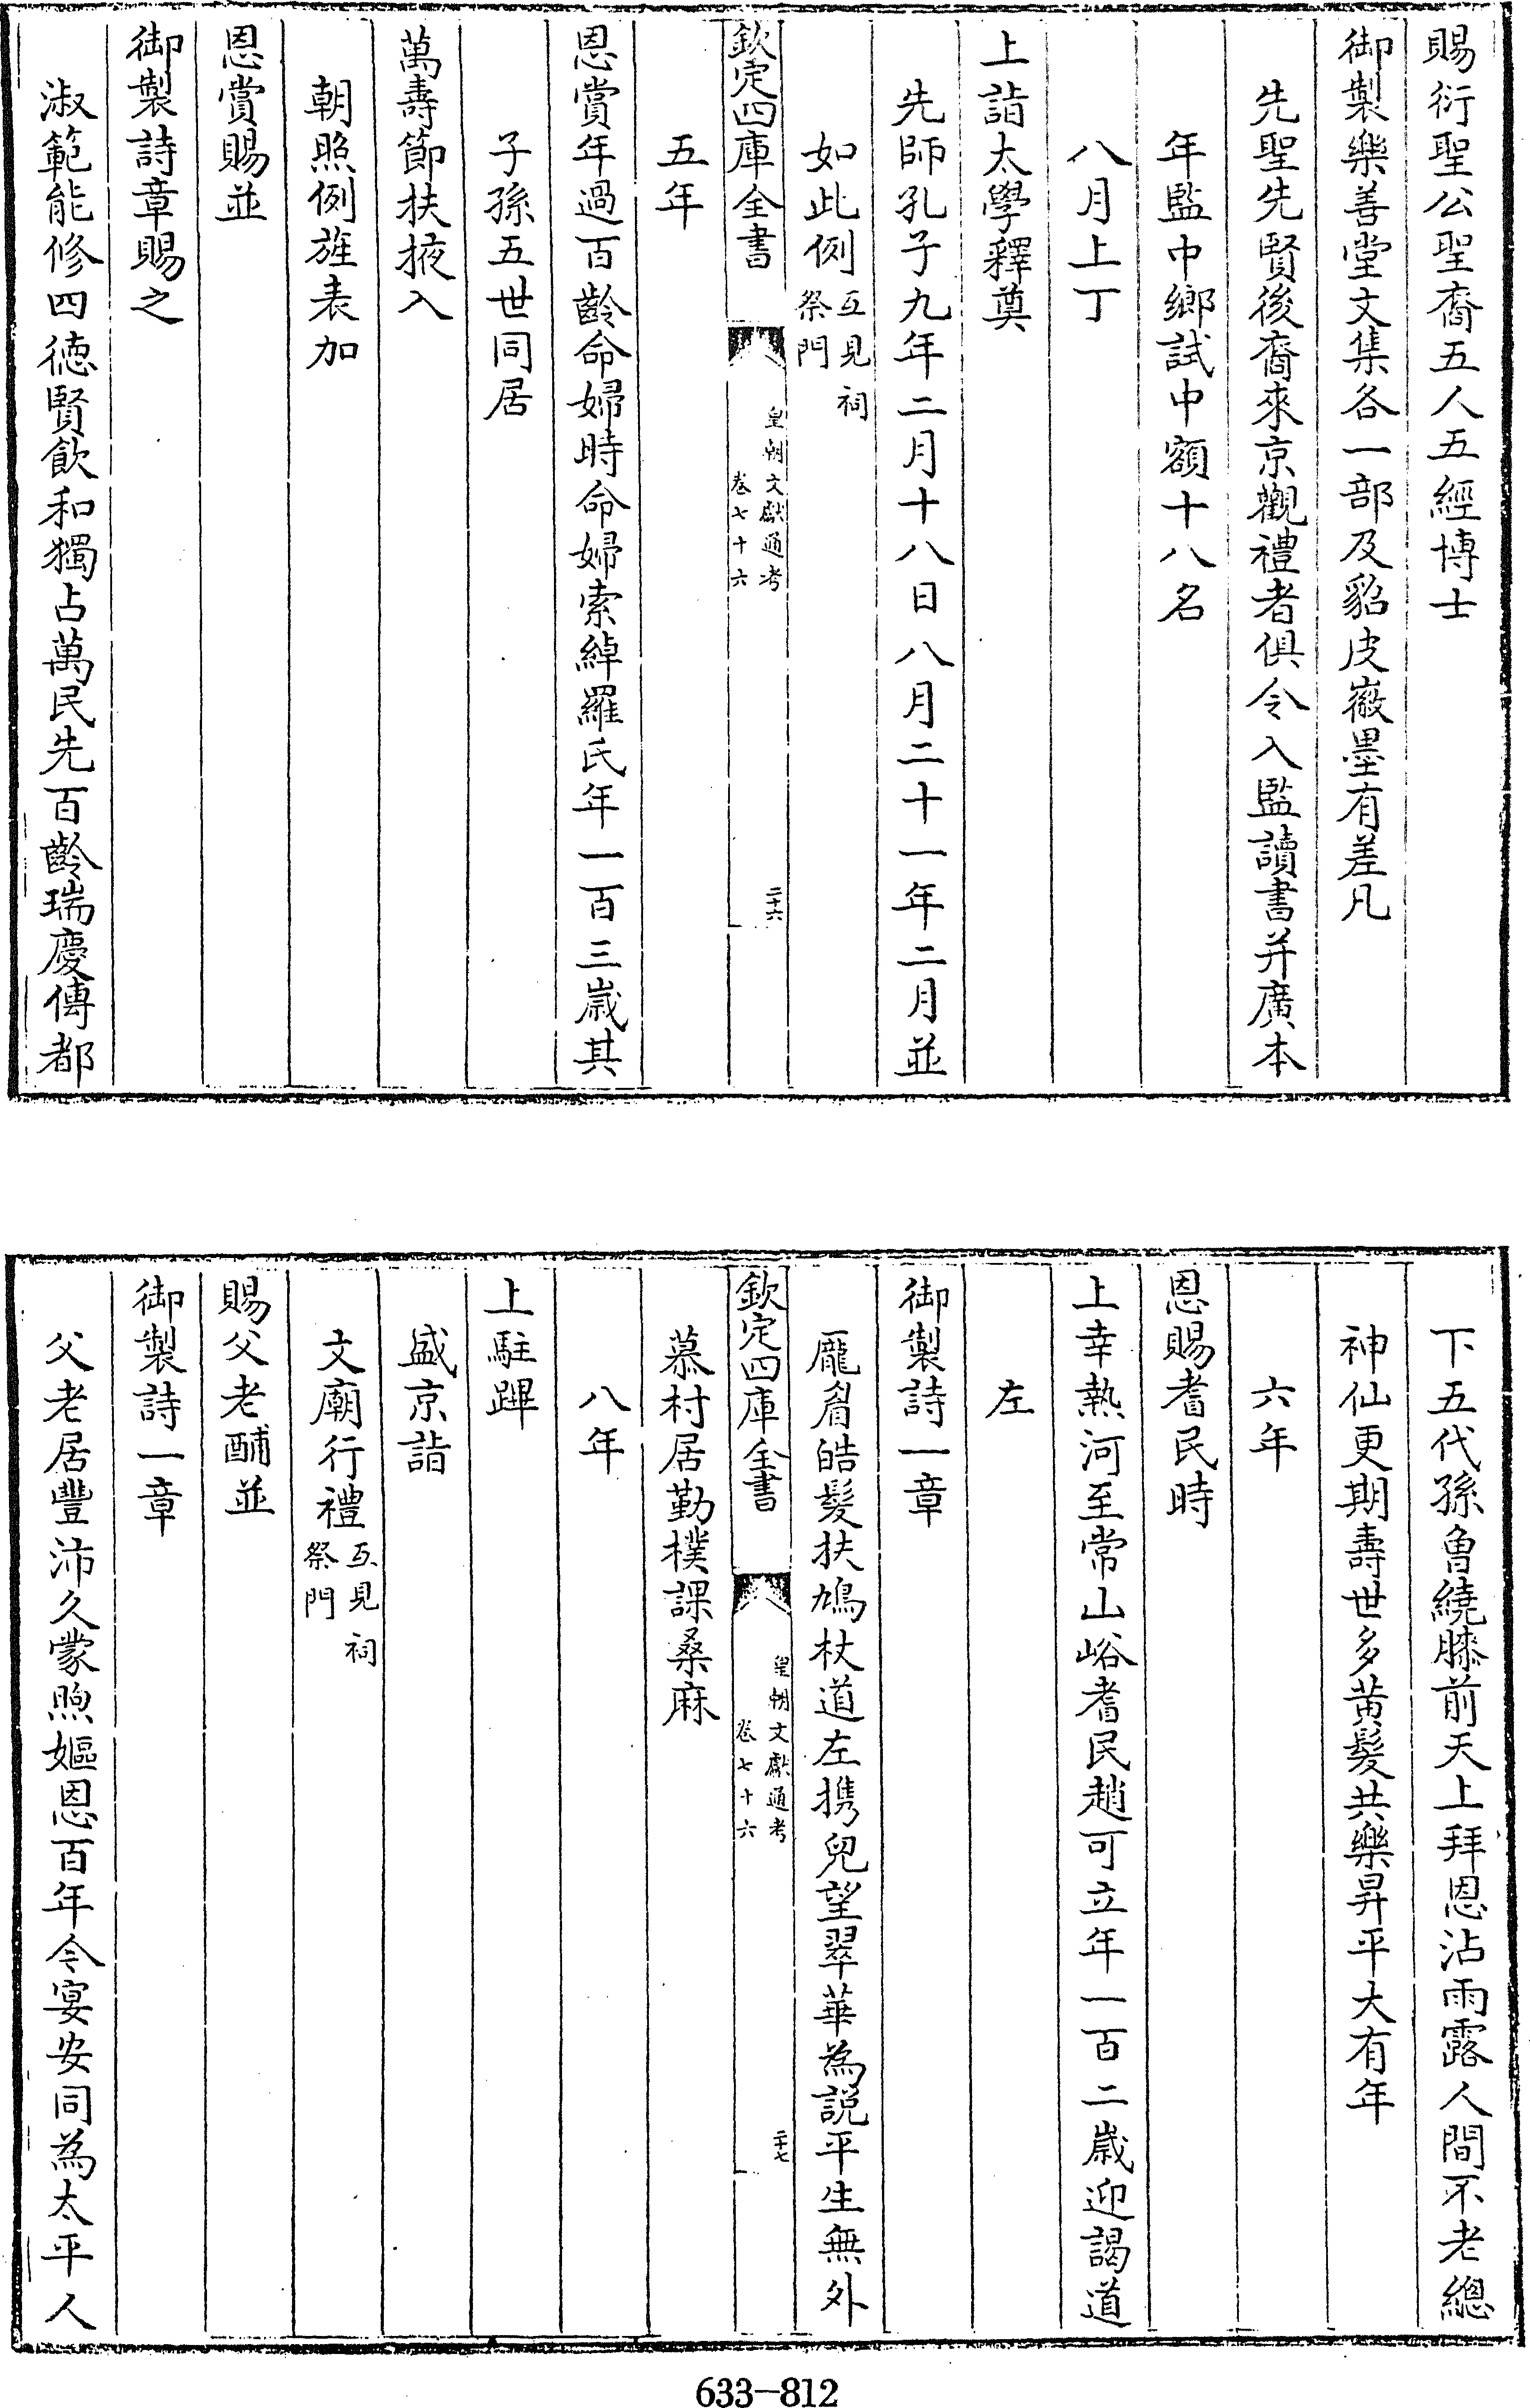 賜衍聖公聖裔五人五經博士
御製樂善堂文集各一部及貂皮徽墨有差凡
先聖先賢後裔來京觀禮者俱令入監讀書并廣本
年監中鄉試中額十八名
八月上丁
上詣太學釋奠
先師孔子九年二月十八日八月二十一年二月並
如此例互見祠祭門
欽定四庫全書
皇朝文獻通考
卷七十六
二十六
五年
恩賞年過百齡命婦時命婦索綽羅氏年一百三歲其
子孫五世同居
萬壽節扶掖入
朝照例旌表加
恩賞賜並
御製詩章賜之
淑範能修四德賢飲和獨占萬民先百齡瑞慶傳都
下五代孫曾繞膝前天上拜恩沾雨露人間不老總
神仙更期壽世多黃髮共樂昇平大有年
六年
恩賜耆民時
上幸熱河至常山峪耆民趙可立年一百二歲迎謁道
左
御製詩一章
龎眉皓髮扶鳩杖道左攜兒望翠華為說平生無外
欽定四庫全書
皇朝文獻通考
卷七十六
二十七
慕村居勤樸課桑麻
八年
上駐蹕
盛京詣
文廟行禮互見祠祭門
賜父老酺並
御製詩一章
父老居豐沛久蒙煦嫗恩百年今宴安同為太平人
633-812